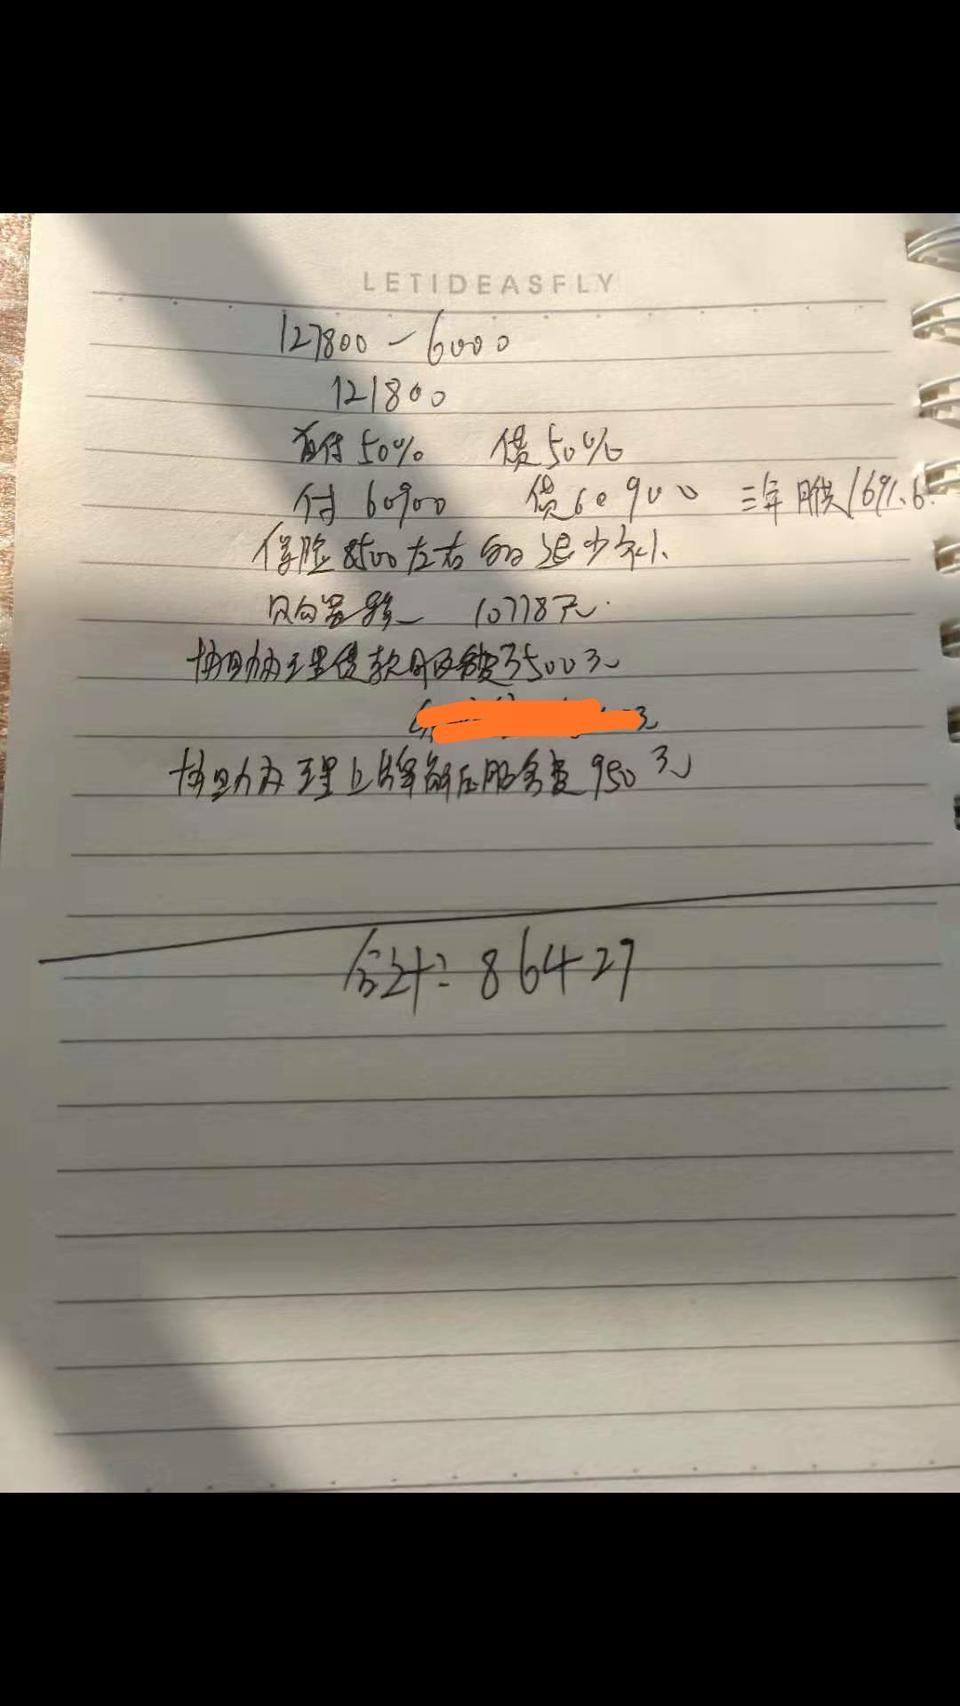 LETIDEASFLY
127800-6000
121800
首付50% 贷50%
付60900 贷60900 三年月供1691.6
保险8500左右多退少补
购置税 10778元
协助办理贷款服务费3500元
元
协助办理上牌解压服务费950元
合计:86427